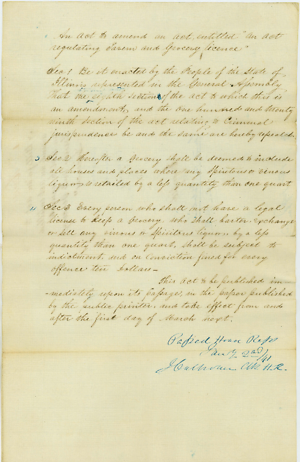 An act to amend an act entitled "An act
regulating Tavern and Grocery licence"
Sec. 1 Be it enacted by the People of the State of
Illinois represented in the General Assembly
that the eighth section of the act to which this is
an amendment, and the one hundred and thirty
ninth section of the act relating to Criminal
jurisprudence be and the same are hereby repealed
Sec 2 Hereafter a Grocery shall be deemed to include
all houses and places where any Spiritous or vinous
liquors retailed by a less quantity than one quart
Sec 3 Every person who shall not have a legal
license to keep a Grocery who shall barter exchange
or sell any vinous or Spiritous liquors by a less
quantity than one quart, shall be subject to
indictment and on Conviction fined for every
offence ten dollars—
This act to be published im-
mediately upon its passage in the paper published
by the public printer and take effect from and
after the first day of March next.
Passed Hou Reps
Jany 22nd /41
J Calhoun Clk H.R.